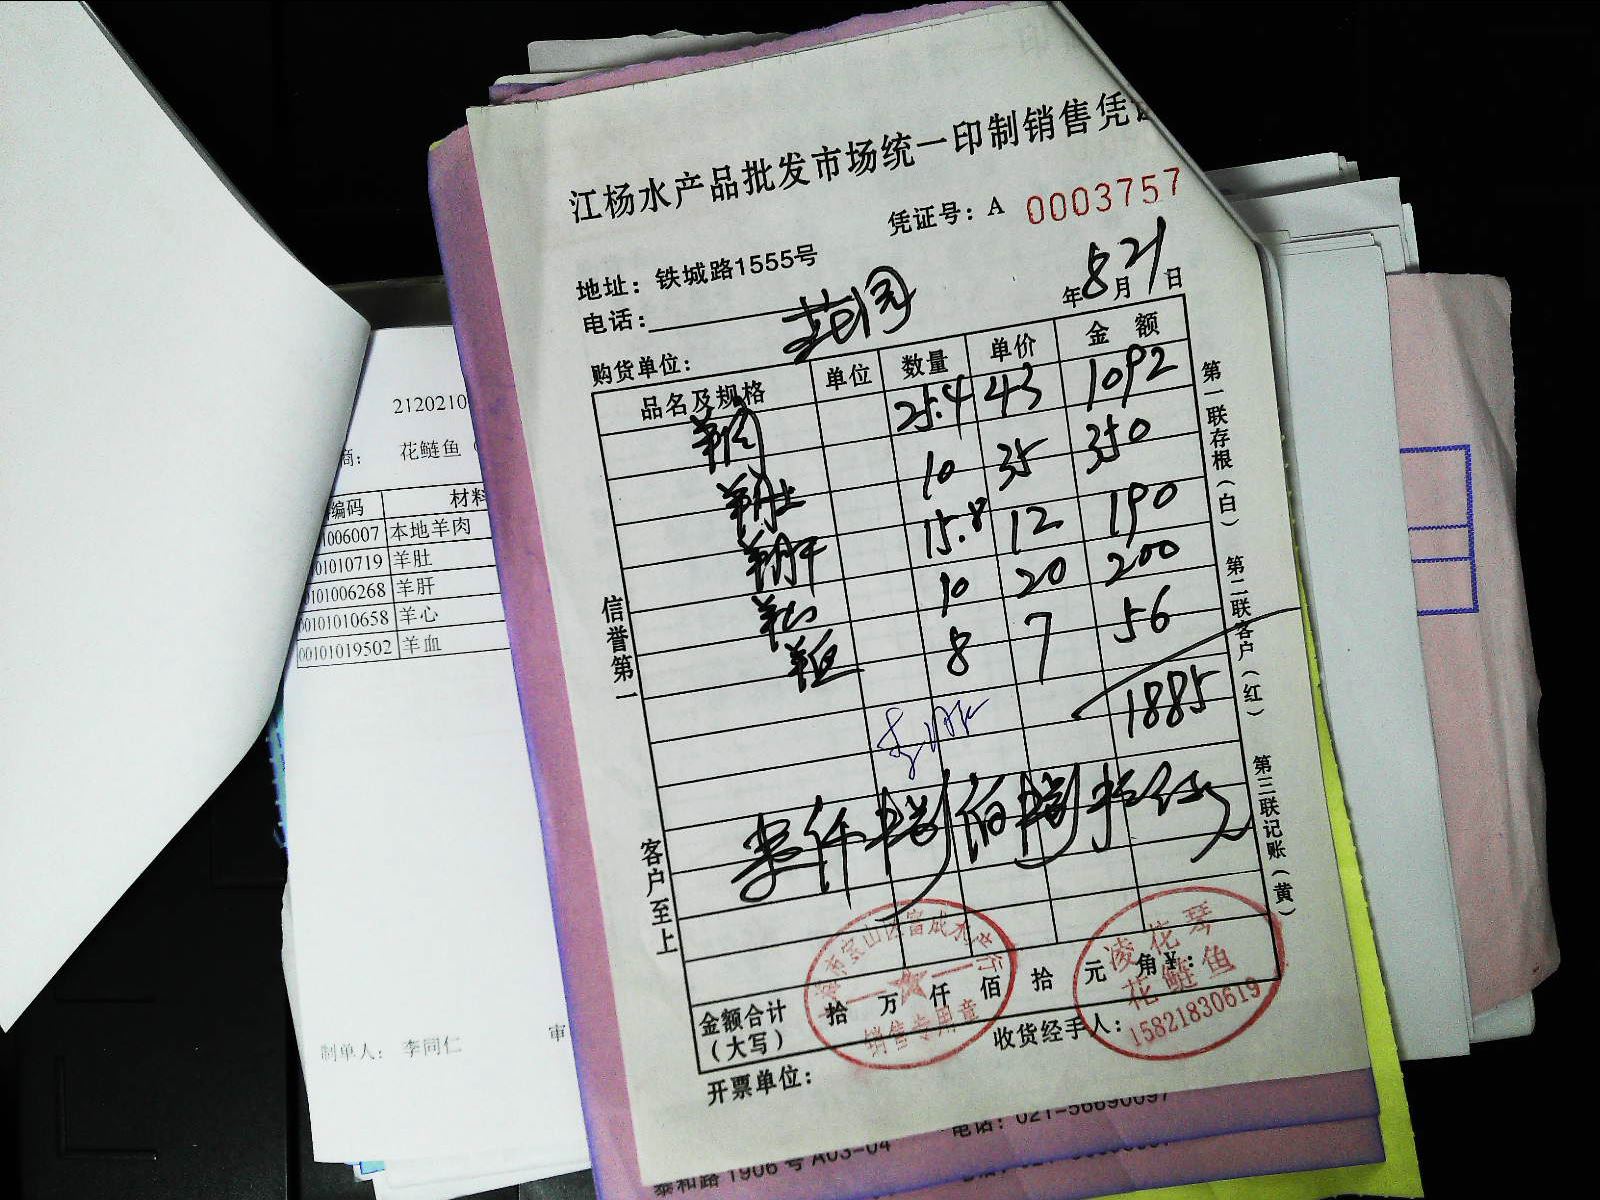 江杨水产品批发市场统一印制销售凭
凭证号：A 0003757
地址：铁城路1555号
电话：
年 8 月 21 日
购货单位： 花园
品名及规格 单位 数量 单价 金 额
羊肉 25.4 43 1092
羊肚 10 35 350
羊肝 15.8 12 190
羊心 10 20 200
羊血 8 7 56
1885
壹仟捌佰捌拾伍元
金额合计（大写） 拾 万 仟 佰 拾 元 角¥：
收货经手人：
开票单位：
信誉第一
客户至上
第一联存根（白） 第二联客户（红） 第三联记账（黄）
宝山区富成水产行
销售专用章
凌花琴
花鲢鱼
15821830619
2120210
商： 花鲢鱼（
编码 材料
1006007 本地羊肉
01010719 羊肚
0101006268 羊肝
00101010658 羊心
00101019502 羊血
制单人： 李同仁 审
电话：021-56690097
泰和路1906号A03-04